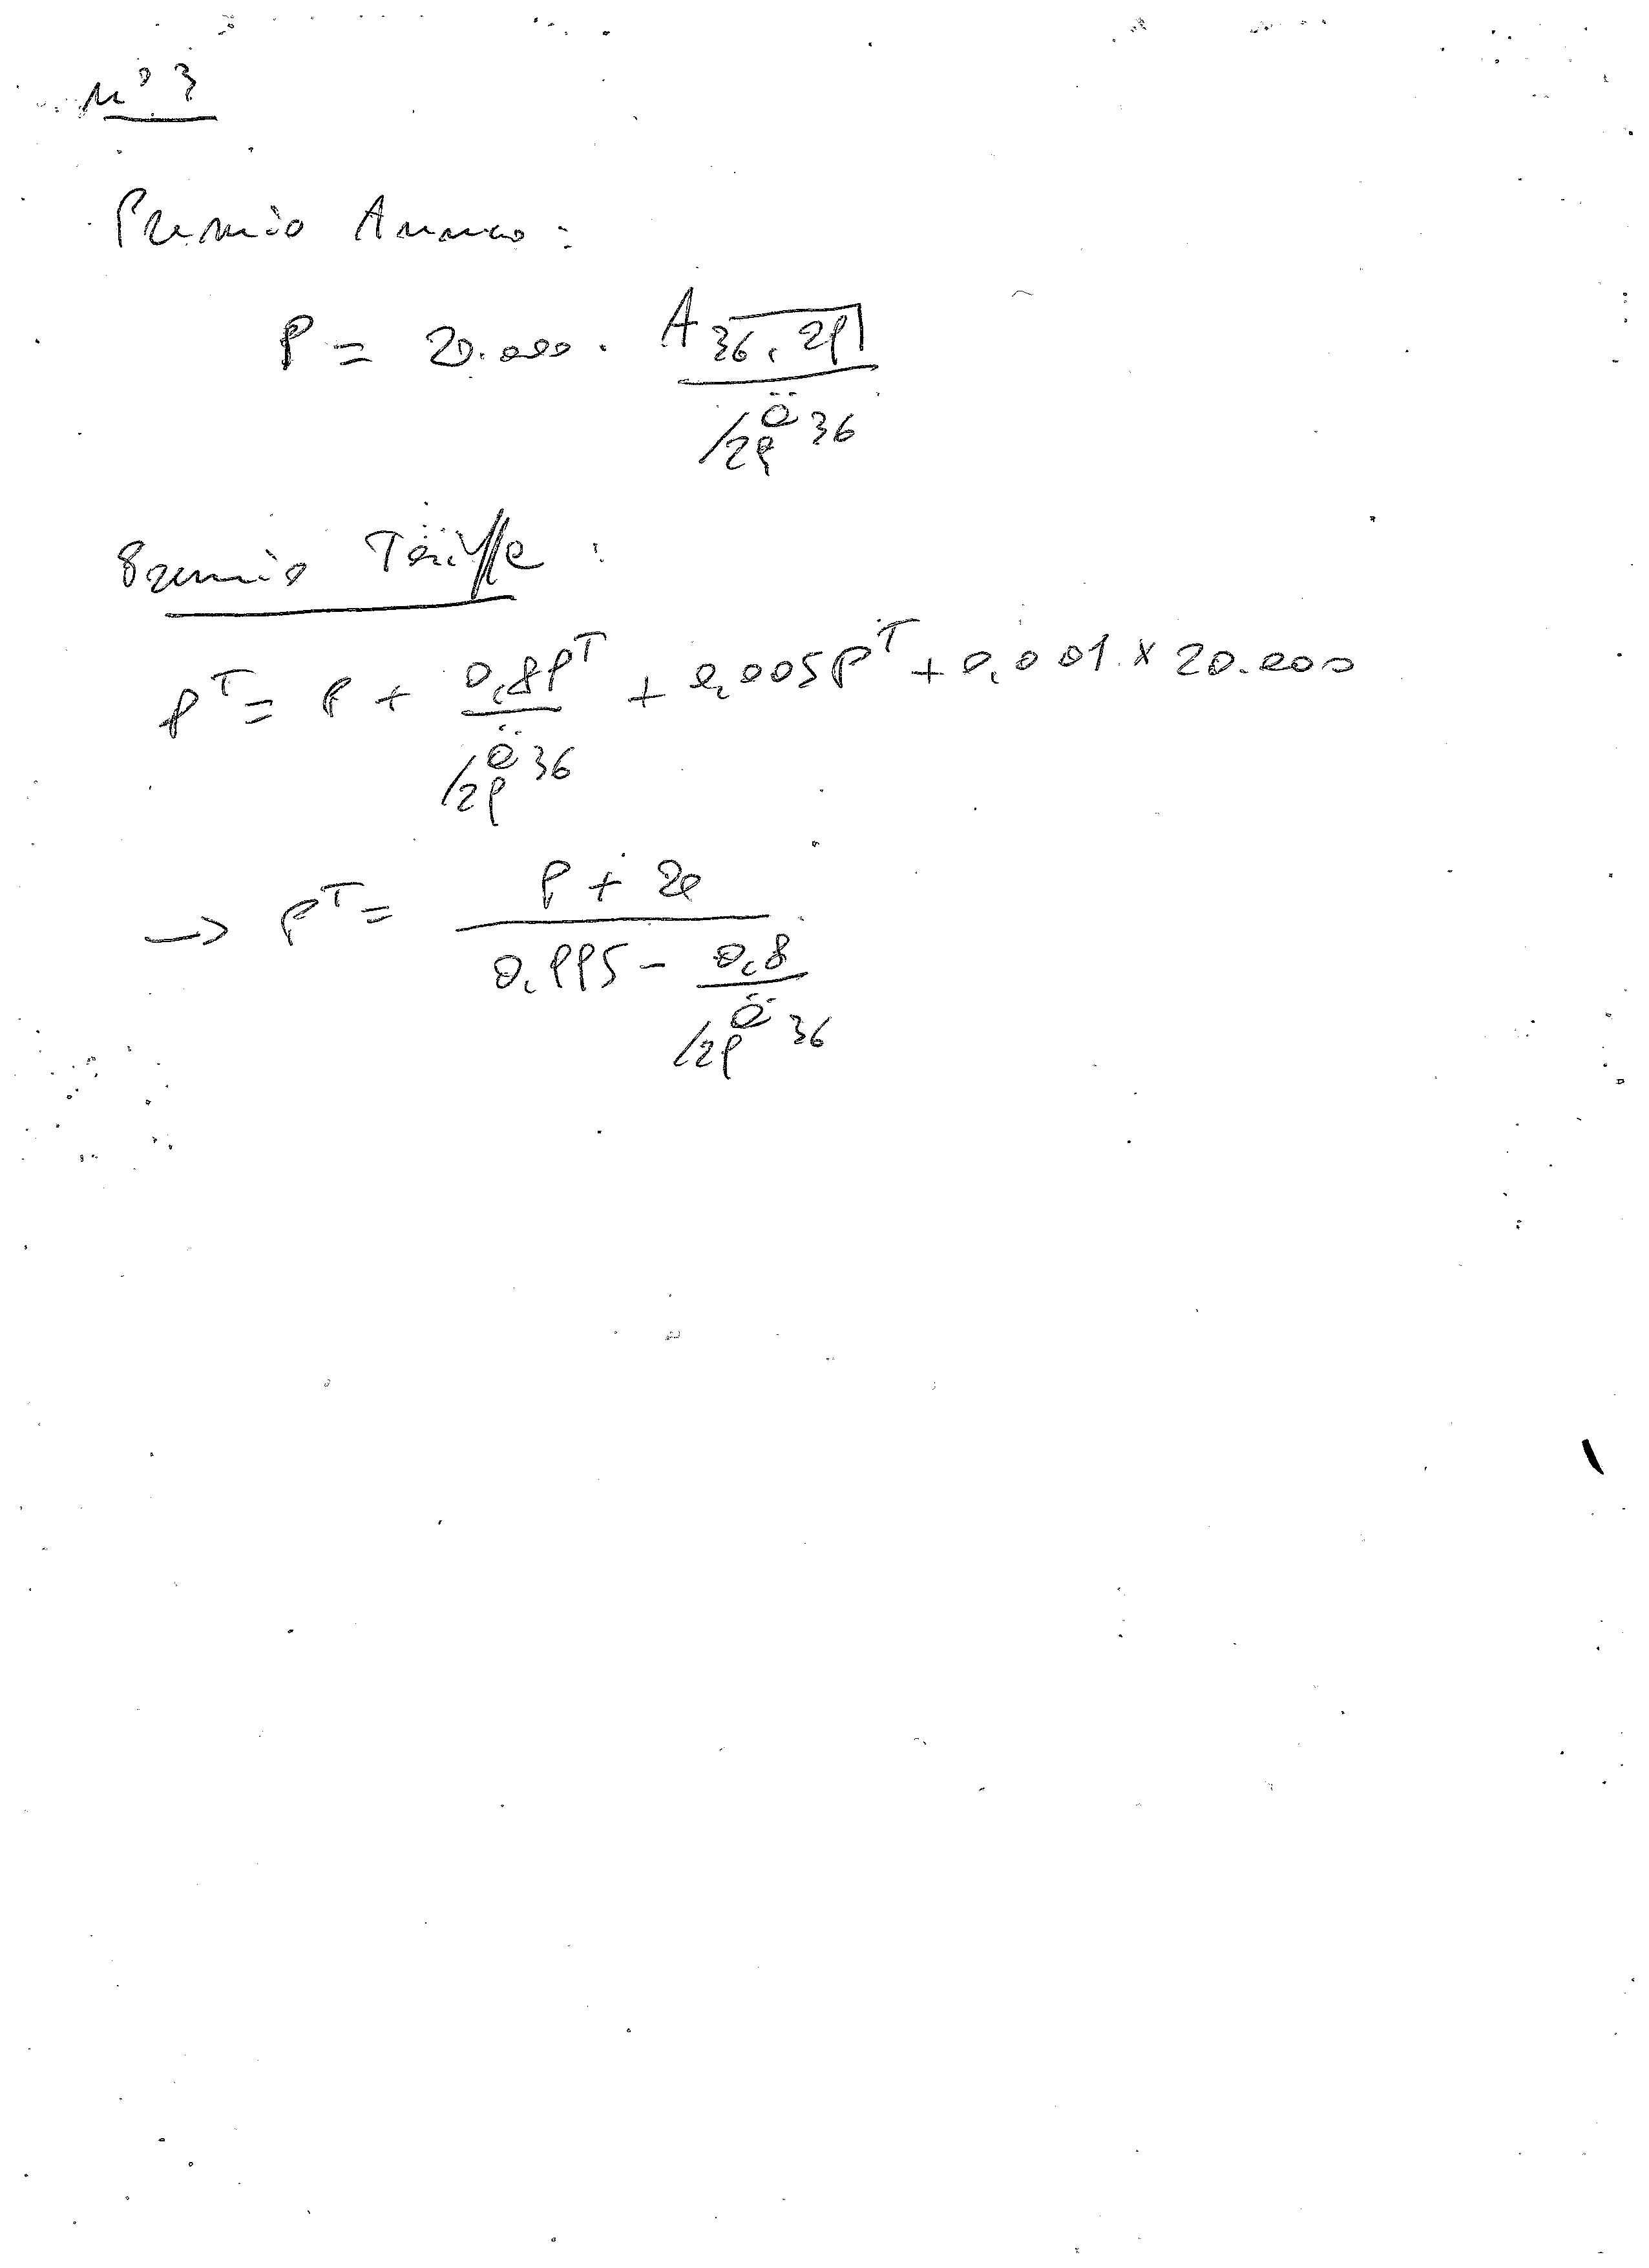 N° 3
Premio Annuo:
P = 20.000 · A 36, 29
/29 ä 36
Premio Tariffa:
P^T = P + 0,8P^T + 0,005P^T + 0,001 × 20.000
/29 ä 36
→ P^T = P + 20
0,995 - 0,8
/29 ä 36